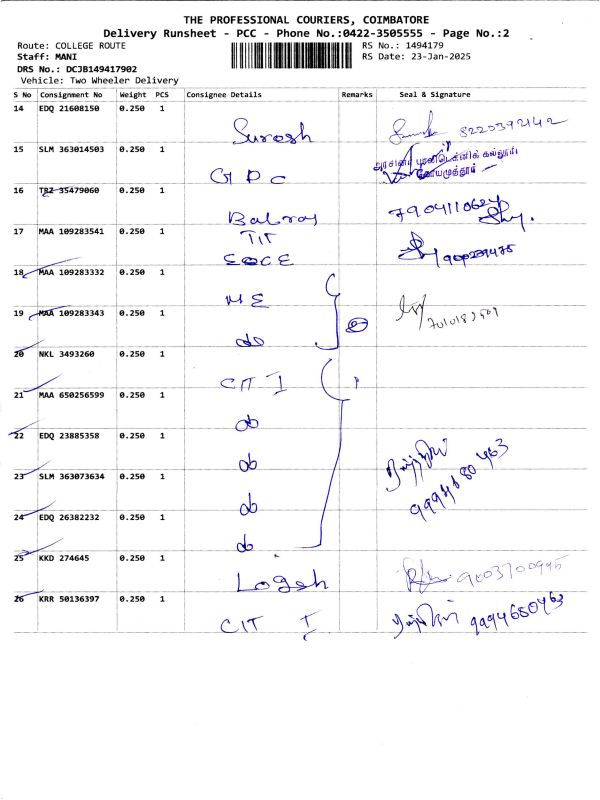 THE PROFESSIONAL COURIERS, COIMBATORE
Delivery Runsheet - PCC - Phone No.:0422-3505555 - Page No.:2
Route: COLLEGE ROUTE RS No.: 1494179
Staff: MANI RS Date: 23-Jan-2025
DRS No.: DCJB149417902
Vehicle: Two Wheeler Delivery
S No Consignment No Weight PCS Consignee Details Remarks Seal & Signature
14 EDQ 21608150 0.250 1
Suresh
15 SLM 363014503 0.250 1
அரசினர் பாலிடெக்னிக் கல்லூரி
GPC கோயமுத்தூர்
16 TRZ 35479060 0.250 1
Balraj 7904110624
17 MAA 109283541 0.250 1 TIT
ECE
18 MAA 109283332 0.250 1
ME
19 MAA 109283343 0.250 1
do
20 NKL 3493260 0.250 1
CIT I
21 MAA 650256599 0.250 1
do
22 EDQ 23885358 0.250 1
do
23 SLM 363073634 0.250 1
do
24 EDQ 26382232 0.250 1
do
25 KKD 274645 0.250 1
Logesh 9003700995
26 KRR 50136397 0.250 1
CIT I